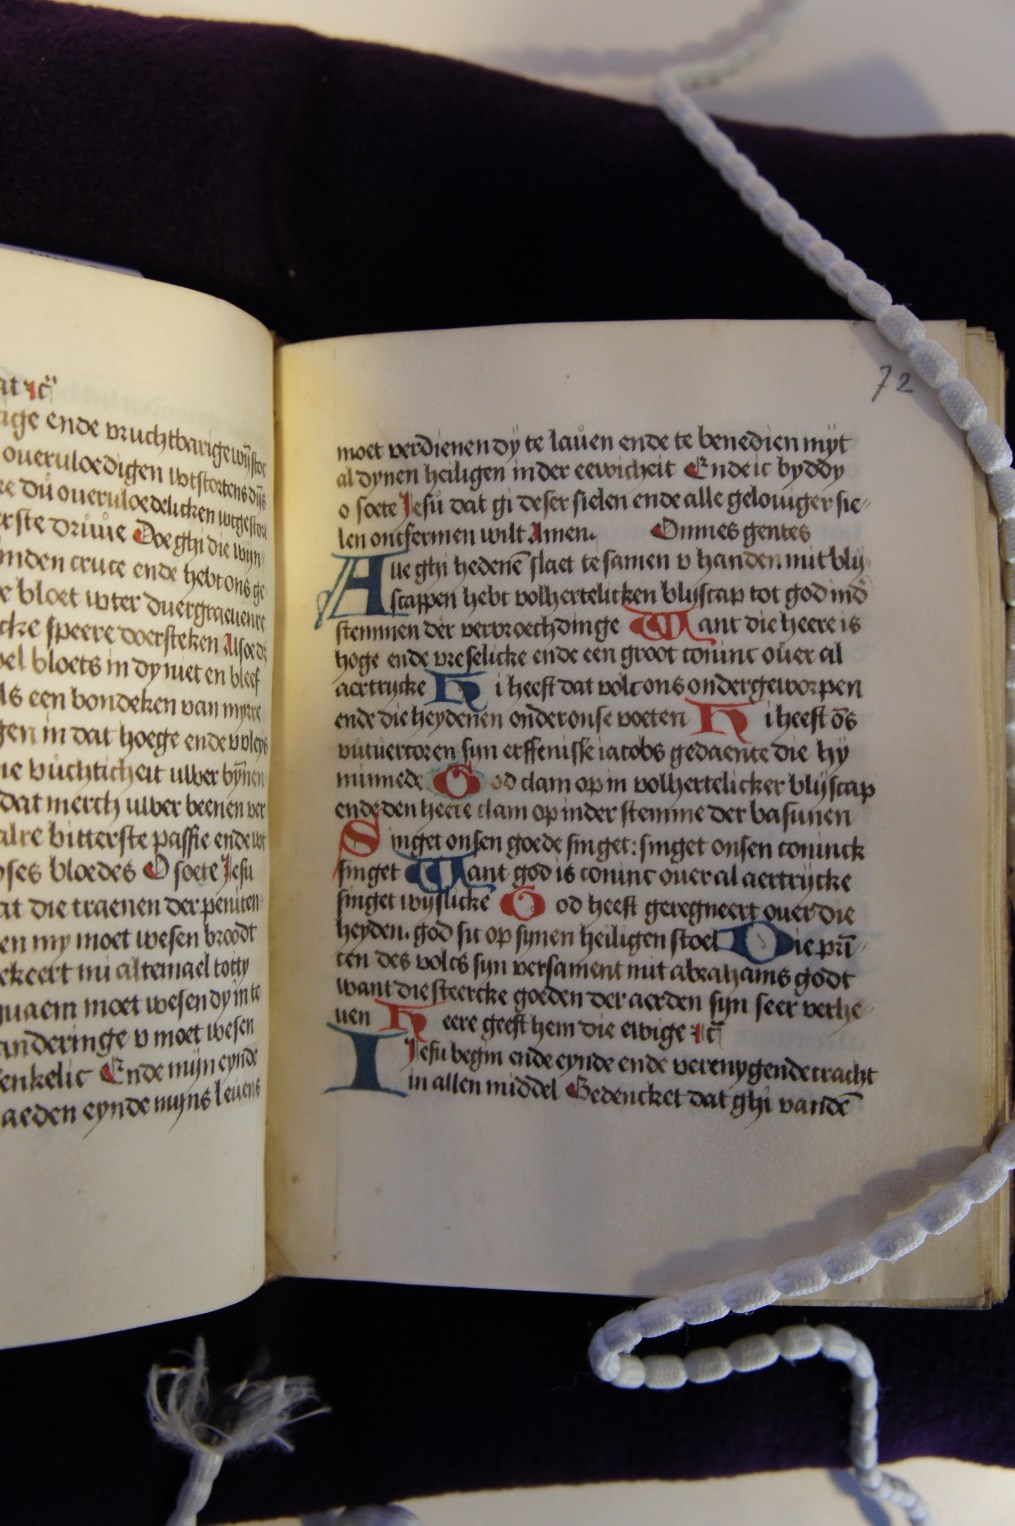 at ic̄
ige ende vruchtbarige wÿstoc
oueruloedigen wtstortens dÿs
re dů oueruloedelicken wtgestort
erste drůůe Doe ghi die wÿn
nden cruce ende hebt ons ge
e bloet wter duergraeuente
cke speere doersteken Alsoe dz
oel bloets in dy niet en bleef
ls een bondeken van myrre
gen in dat hoege ende v vleys
ie vůchticheit uwer bÿnen
dat merch uwer beenen ver
alre bitterste passie ende wt
ses bloedes O soete Jesu
at die traenen der peniten
en my moet wesen broodt
ekeert mi altemael tot ty
quaem moet wesen dy in te
anderinge v moet wesen
enkelic Ende mijn eynde
aeden eynde myns leuens
72
moet verdienen dÿ te laůen ende te benedien mÿt
al dynen heiligen in der eewicheit Ende ic bÿd dy
o soete Jesů dat gi deser sielen ende alle gelouiger sie-
len ontfermen wilt Amen. Omnes gentes
Alle ghi hedenē slaet te samen v handen mit blij-
scappen hebt volhertelicken blijscap tot god in d̄
stemmen der vervroechdinge Want die heere is
hoge ende vreselicke ende een groot coninc oůer al
aertrijcke Hi heeft dat volc ons ondergeworpen
ende die heydenen onder onse voeten Hi heeft ōs
vůtuertoren sijn erffenisse iacobs gedaente die hy
minnede God clam op in volhertelicker blijscap
ende den heere clam op in der stemme der basunen
Singet onsen goede singet: singet onsen coninck
singet Want god is coninc ouer al aertrijcke
singet wijslicke God heeft geregneert ouer die
heyden. god sit op sijnen heiligen stoel Die prī-
cen des volcs sijn versament mit abrahams godt
want die steercke goeden der aerden sijn seer verhe-
uen Heere geeft hem die ewige ic̄
Jesu begin ende eynde ende verenygende cracht
in allen middel Gedencket dat ghi van dē